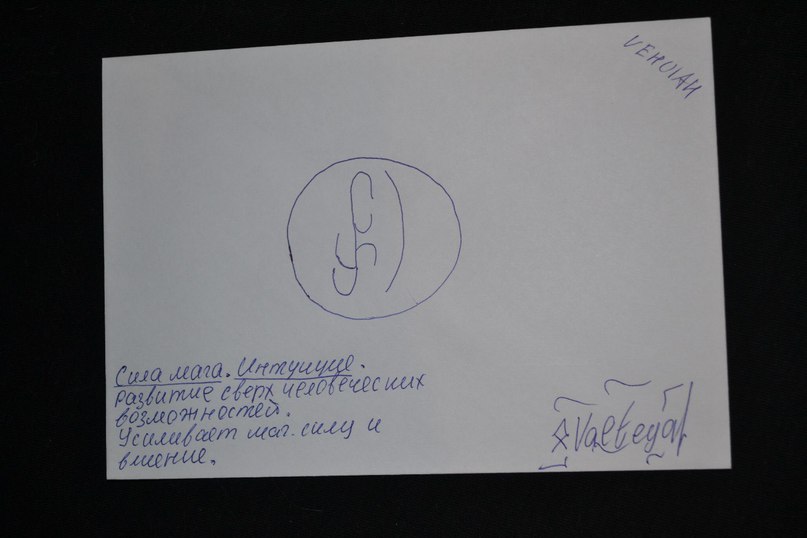 VEHUIAH
Сила мага. Интуиция.
развитие сверх человеческих
возможностей.
Усиливает маг. силу и
влиение.
Valteya